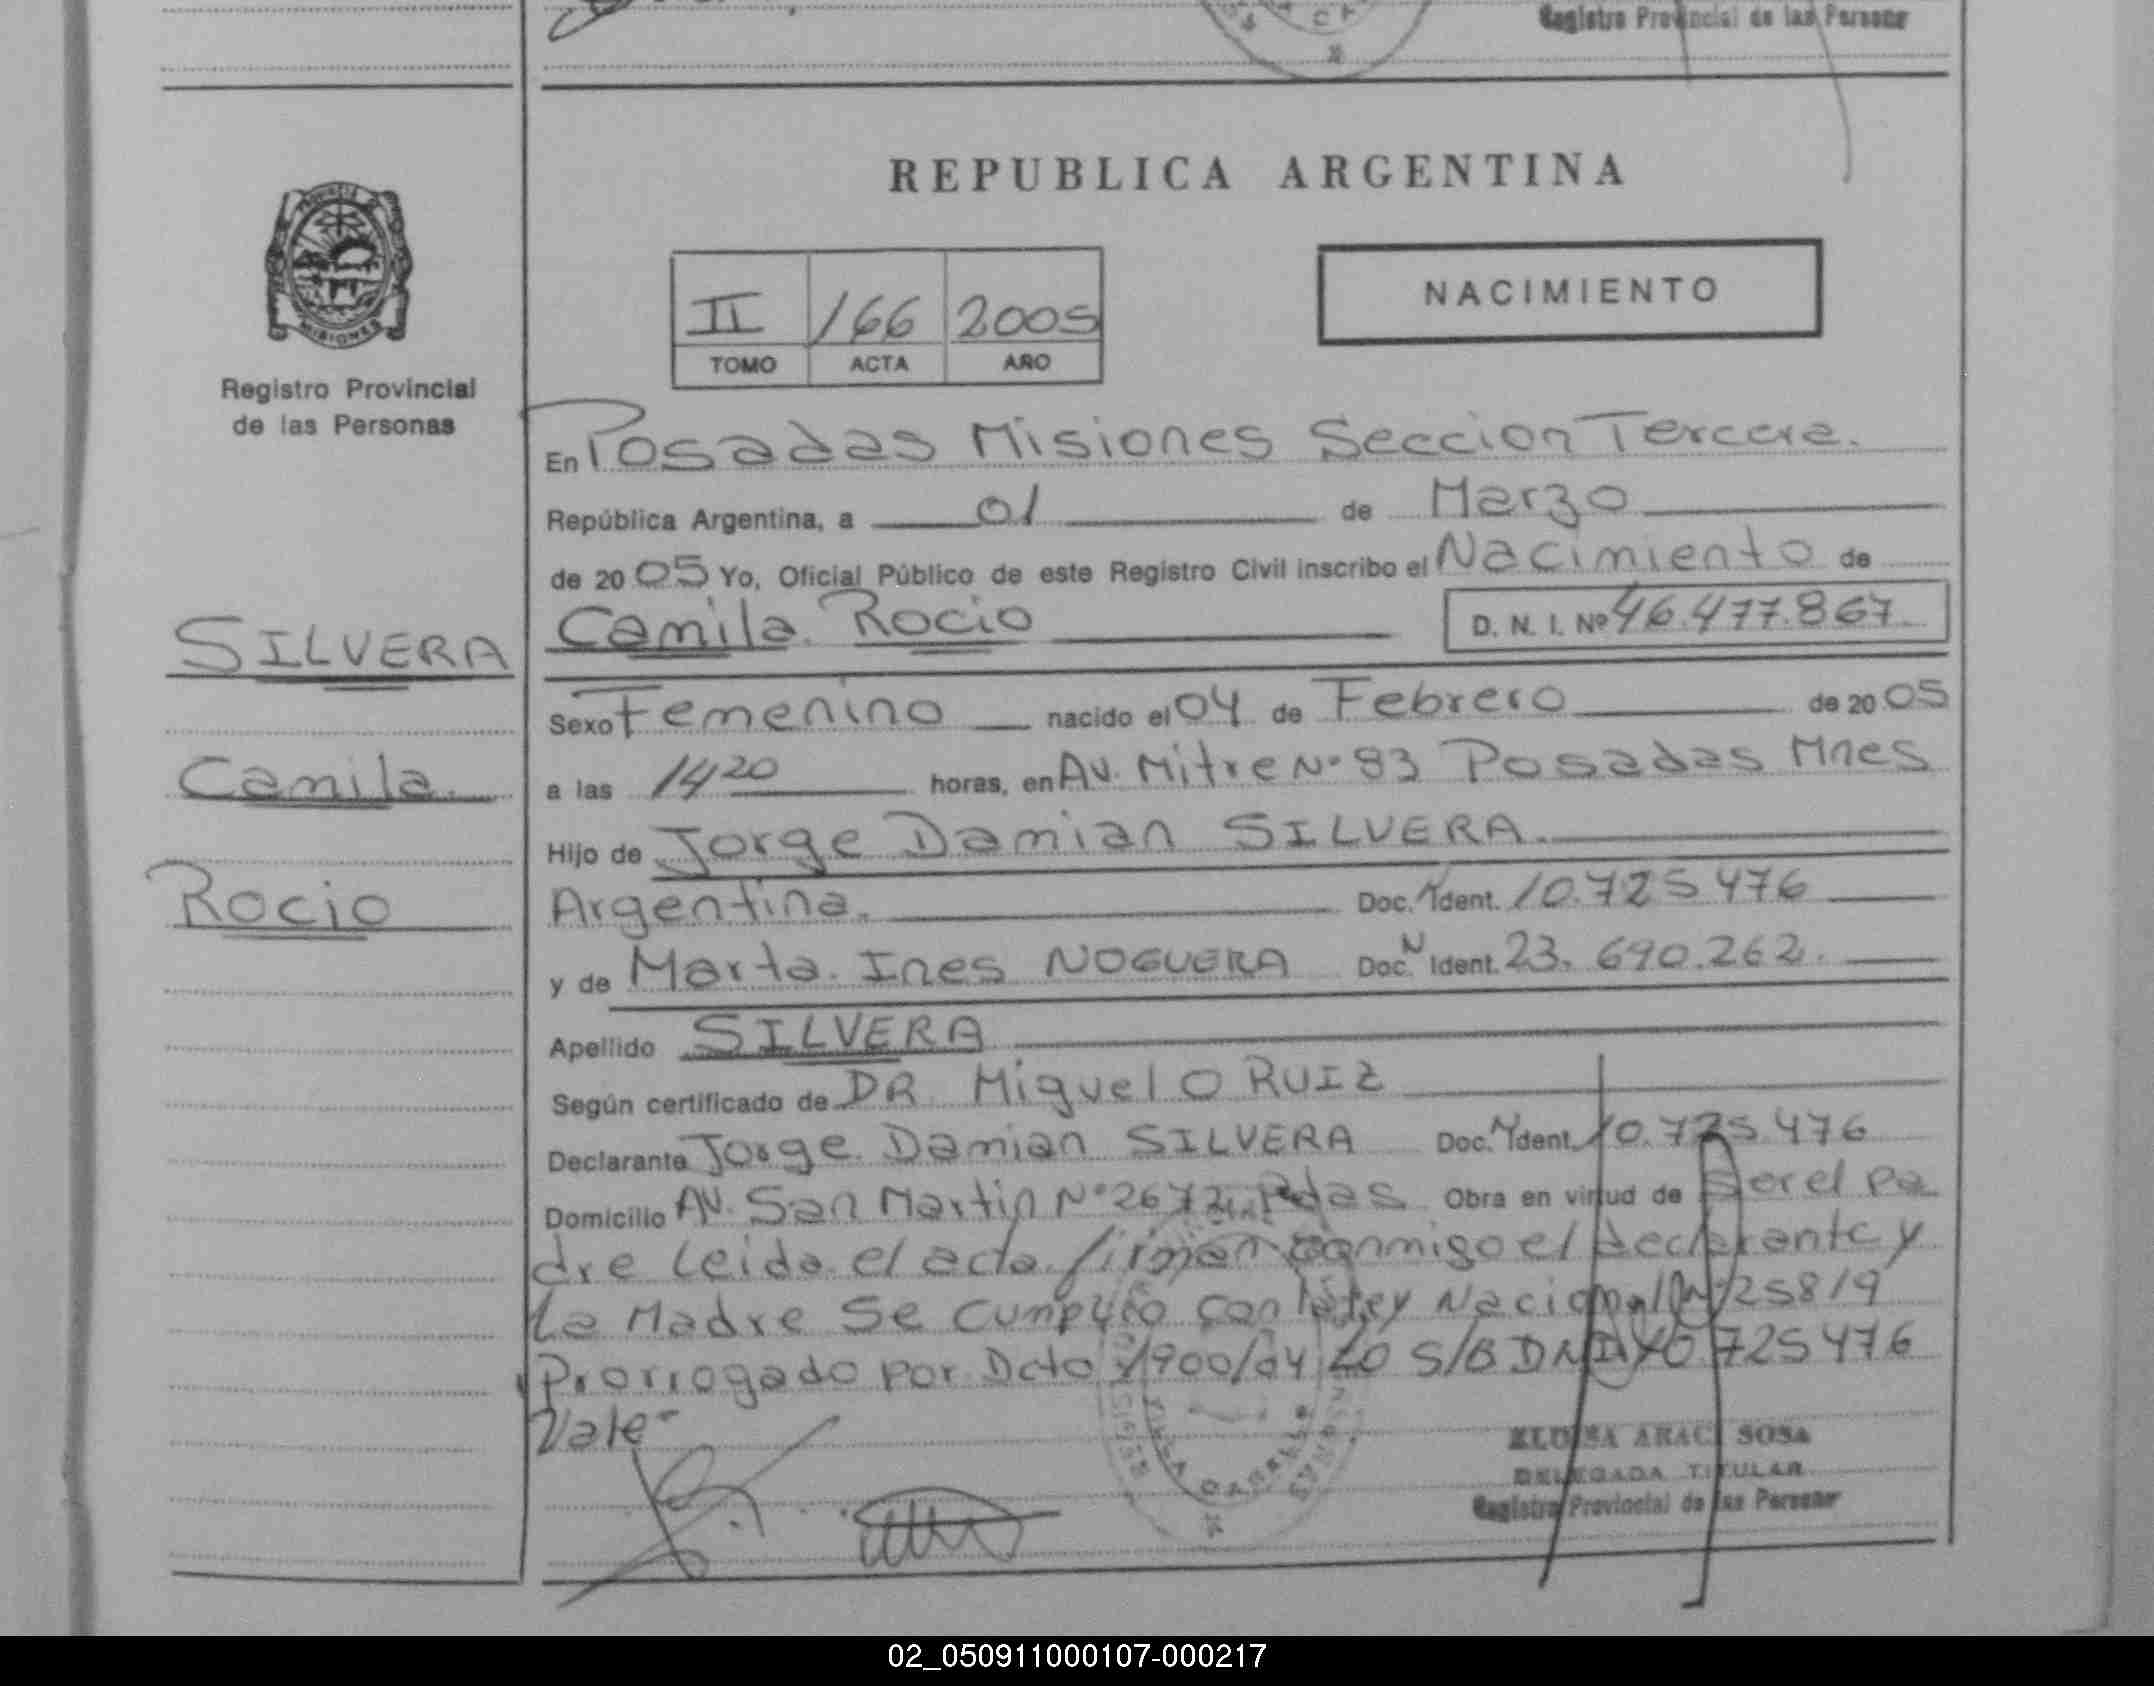 Registro Provincial de las Personas
REPUBLICA ARGENTINA
PROVINCIA DE
MISIONES
Registro Provincial
de las Personas
II 166 2005
TOMO ACTA AÑO
NACIMIENTO
SILVERA
Camila
Rocio
En Posadas Misiones Seccion Tercera.
República Argentina, a 01 de Marzo
de 2005 Yo, Oficial Público de este Registro Civil inscribo el Nacimiento de
Camila Rocio D. N. I. Nº 46.477.867
Sexo Femenino nacido el 04 de Febrero de 2005
a las 14 20 horas, en AV. Mitre Nº 83 Posadas Mnes
Hijo de Jorge Damian SILVERA.
Argentina. Doc. N Ident. 10.725 476
y de Marta Ines NOGUERA Doc. N Ident. 23. 690.262.
Apellido SILVERA
Según certificado de DR Miguel O RUIZ
Declarante Jorge Damian SILVERA Doc. N Ident. 10.725.476
Domicilio AV. San Martin Nº 2672 Pdas Obra en virtud de ser el pa
dre Leida el acta firman conmigo el declarante y
La Madre Se cumplio con la Ley Nacional Nº 25819
Prorrogado por Dcto 1900/04 LO S/B DNI 10 725 476
Vale-
VILLA CABELLO
ELOISA ARACI SOSA
DELEGADA TITULAR
Registro Provincial de las Personas
02_050911000107-000217